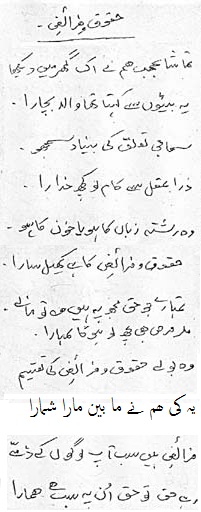 حقوق و فرائض۔
تماشا عجب ھم نے اک گھر میں دیکھا
یہ بیٹوں سے کہتا تھا والد بچارا۔
سماجی تعلق کی بنیاد سمجھو۔
ذرا عقل سے کام لو کچھ خدارا۔
وہ رشتہ زباں کا ہو یا خون کا ہو۔
حقوق و فرائض کا ہے کھیل سارا۔
تمہارے جو حق مجھ پہ ہیں وہ تو مانے۔
مگر فرض بھی کچھ تو ہو گا تمہارا۔
وہ بولے حقوق و فرائض کی تقسیم
یہ کی ھم نے ما بین مارا شمارا
فرائض ہیں سب آپ لوگوں کے ذمے
رہے حق تو حق اُن پہ سب ہے ھمارا